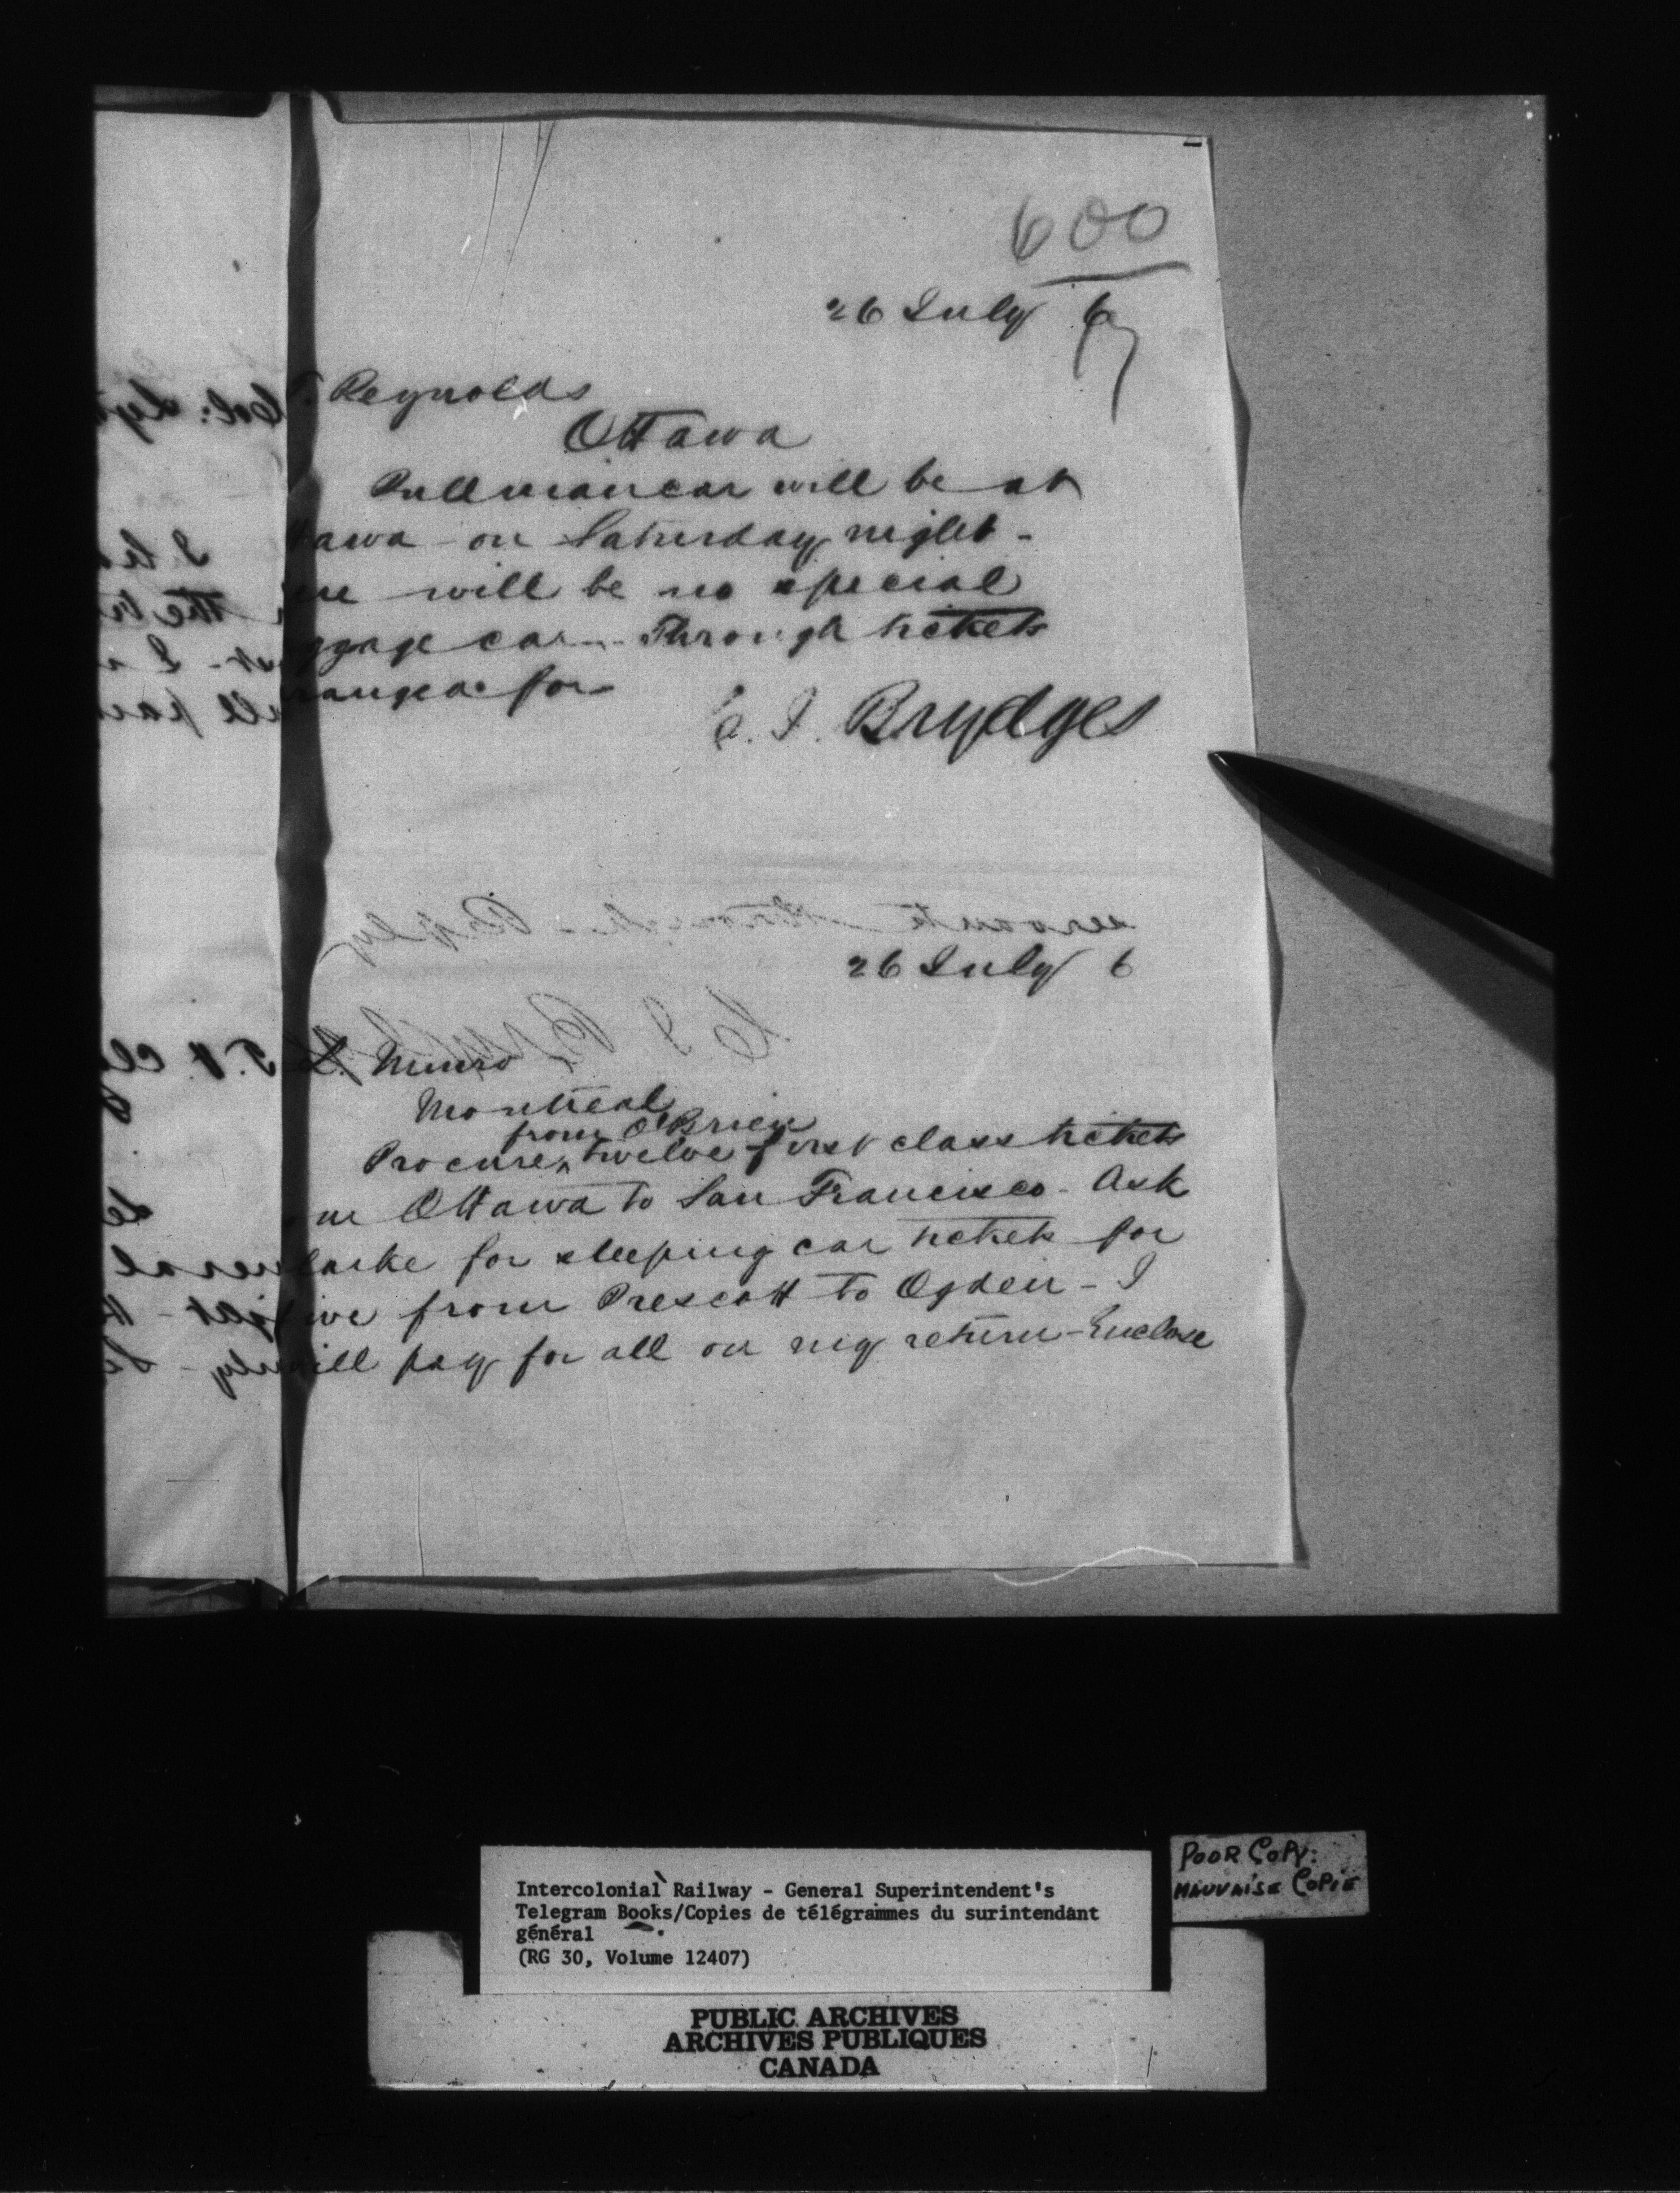 600
26 July 6
T. Reynolds
Ottawa
Pullman car will be at
tawa on Saturday night -
ere will be no special
ggage car - Through tickets
ranged for
C. J. Brydges
26 July 6
Munro
Montreal
from O'Brien
Procure ^ twelve first class tickets
om Ottawa to San Francisco - Ask
larke for sleeping car tickets for
five from Prescott to Ogden - I
will pay for all on my return - Enclose
Intercolonial Railway - General Superintendent's
Telegram Books/Copies de télégrammes du surintendant
général
(RG 30, Volume 12407)
POOR COPY:
MAUVAISE COPIE
PUBLIC ARCHIVES
ARCHIVES PUBLIQUES
CANADA